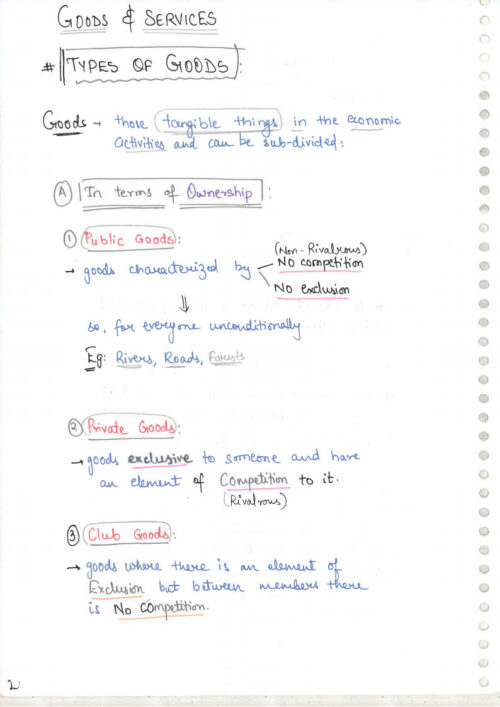 GOODS & SERVICES
# TYPES OF GOODS :
Goods → those tangible things in the economic
Activities and can be sub-divided:
A In terms of Ownership :
1 Public Goods :
(Non-Rivalrous)
→ goods characterized by No competition
No exclusion
⇓
so, for everyone unconditionally
Eg: Rivers, Roads, Forests
2 Private Goods :
→ goods exclusive to someone and have
an element of Competition to it.
(Rivalrous)
3 Club Goods :
→ goods where there is an element of
Exclusion but between members there
is No Competition.
2